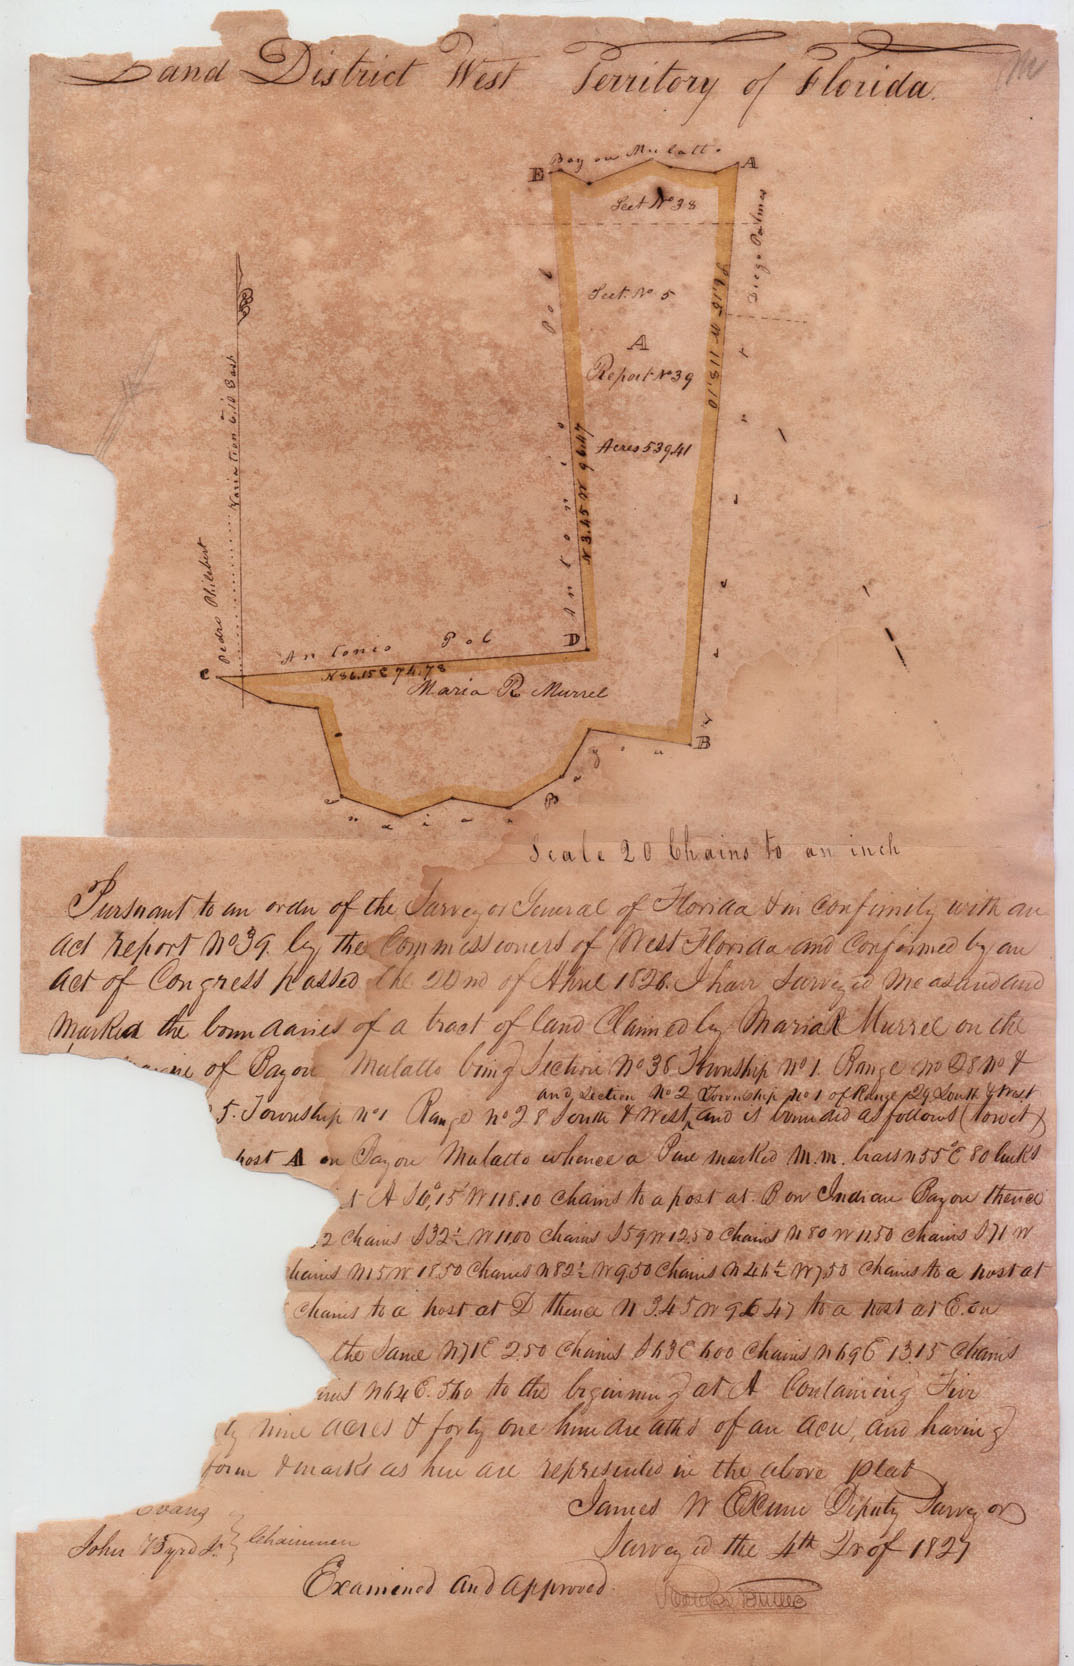 Land District West Territory of Florida.
Bayou Mulatto
E
A
Sect No 38
Diego Palmes
Sect. No 5
Pol
A
Report No 39
6.15 W 118.10
Variation 6.10 East
Acres 539.41
Antonio
N 3.45 W 96.47
Pedro Philibert
Antonio Pol
D
C
N 86.15 E 74.78
Maria R Murrel
B
Indian Bayou
Scale 20 Chains to an inch
Pursuant to an order of the Surveyor General of Florida & in Confimily with an
act report No 39. by the Commissioners of West Florida and Confirmed by an
act of Congress passed the 22nd of April 1826. I have Surveyed Measured and
Marked the boundaries of a tract of land Claimed by Maria R Murrel on the
of Bayou Mulatto being Section No 38 Township No 1. Range No 28 No &
and Section No 2 Township No 1 of Range 29 South & West
5. Township No 1 Range No 28 South & West, and is bounded as follows (towit)
post A on Bayou Mulatto whence a Pine marked M.M. bears N 55° E 80 links
t A S 6°,15' W 118.10 Chains to a post at B on Indian Bayou thence
2 Chains S 32½ W 11.00 Chains S 59 W 12.50 Chains N 80 W 11.50 Chains S 71 W
hains N 15 W 18.50 Chains N 82½ W 9.50 Chains N W 7.50 Chains to a post at
Chains to a post at D thence N 3.45 W 96.47 to a post at E. on
the Same N 71 E 2.50 Chains S 63 E 6.00 Chains N 69 E 13.15 Chains
ains N 64 E. 5.60 to the beginning at A Containing Five
ty nine acres & forty one hundreaths of an acre, and having
form & marks as here are represented in the above plat
James W Exum Deputy Surveyor
Evans
John Byrd Jr. } Chainmen
Surveyed the 4th Qr of 1827
Examined and approved